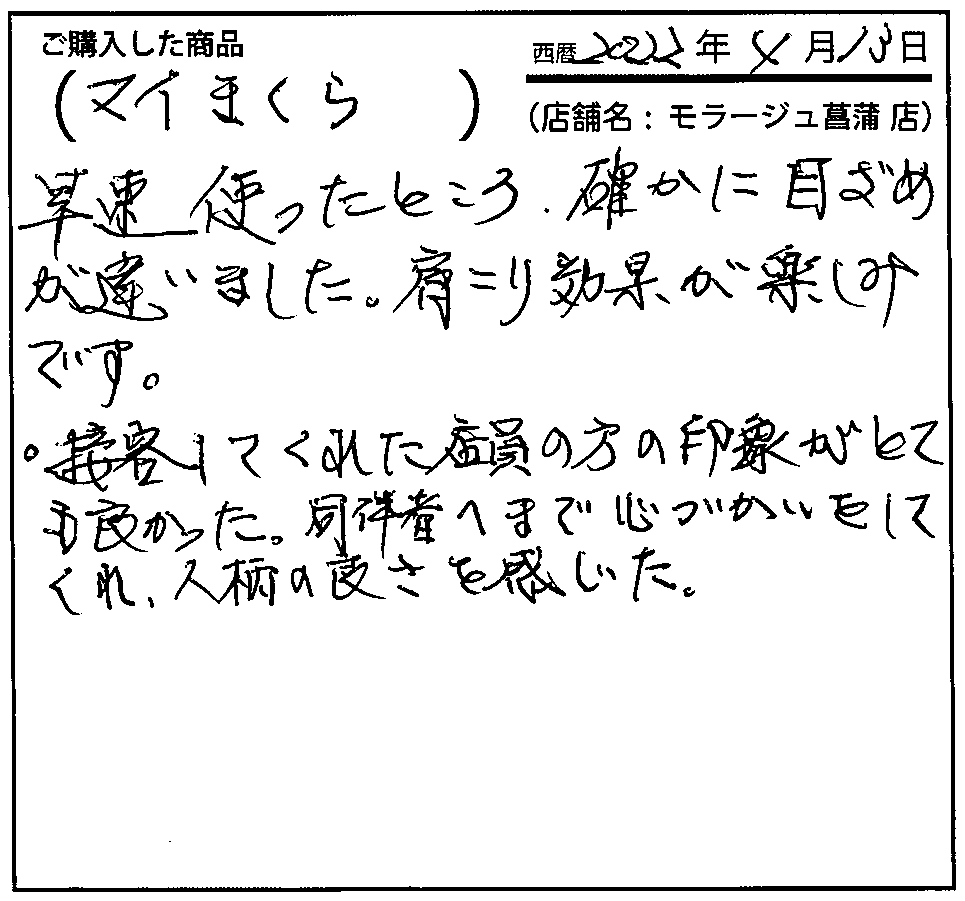 ご購入した商品
西暦2022年4月13日
(マイまくら)
(店舗名：モラージュ菖蒲 店)
早速使ったところ、確かに目ざめ
が違いました。肩こり効果が楽しみ
です。
。接客してくれた店員の方の印象がとて
も良かった。同伴者へまで心づかいをして
くれ、人柄の良さを感じた。